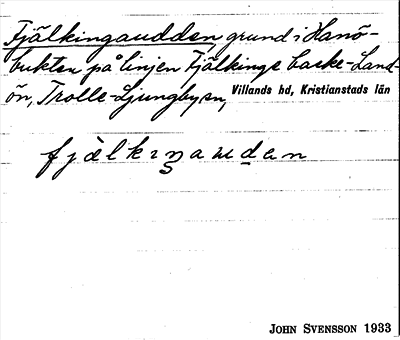 Fjälkingaudden, grund i Hanö-
bukten på linjen Fjälkinge backe-Land-
ön, Trolle-Ljungby sn, Villands hd, Kristianstads län
fjälkiŋaudən
JOHN SVENSSON 1933